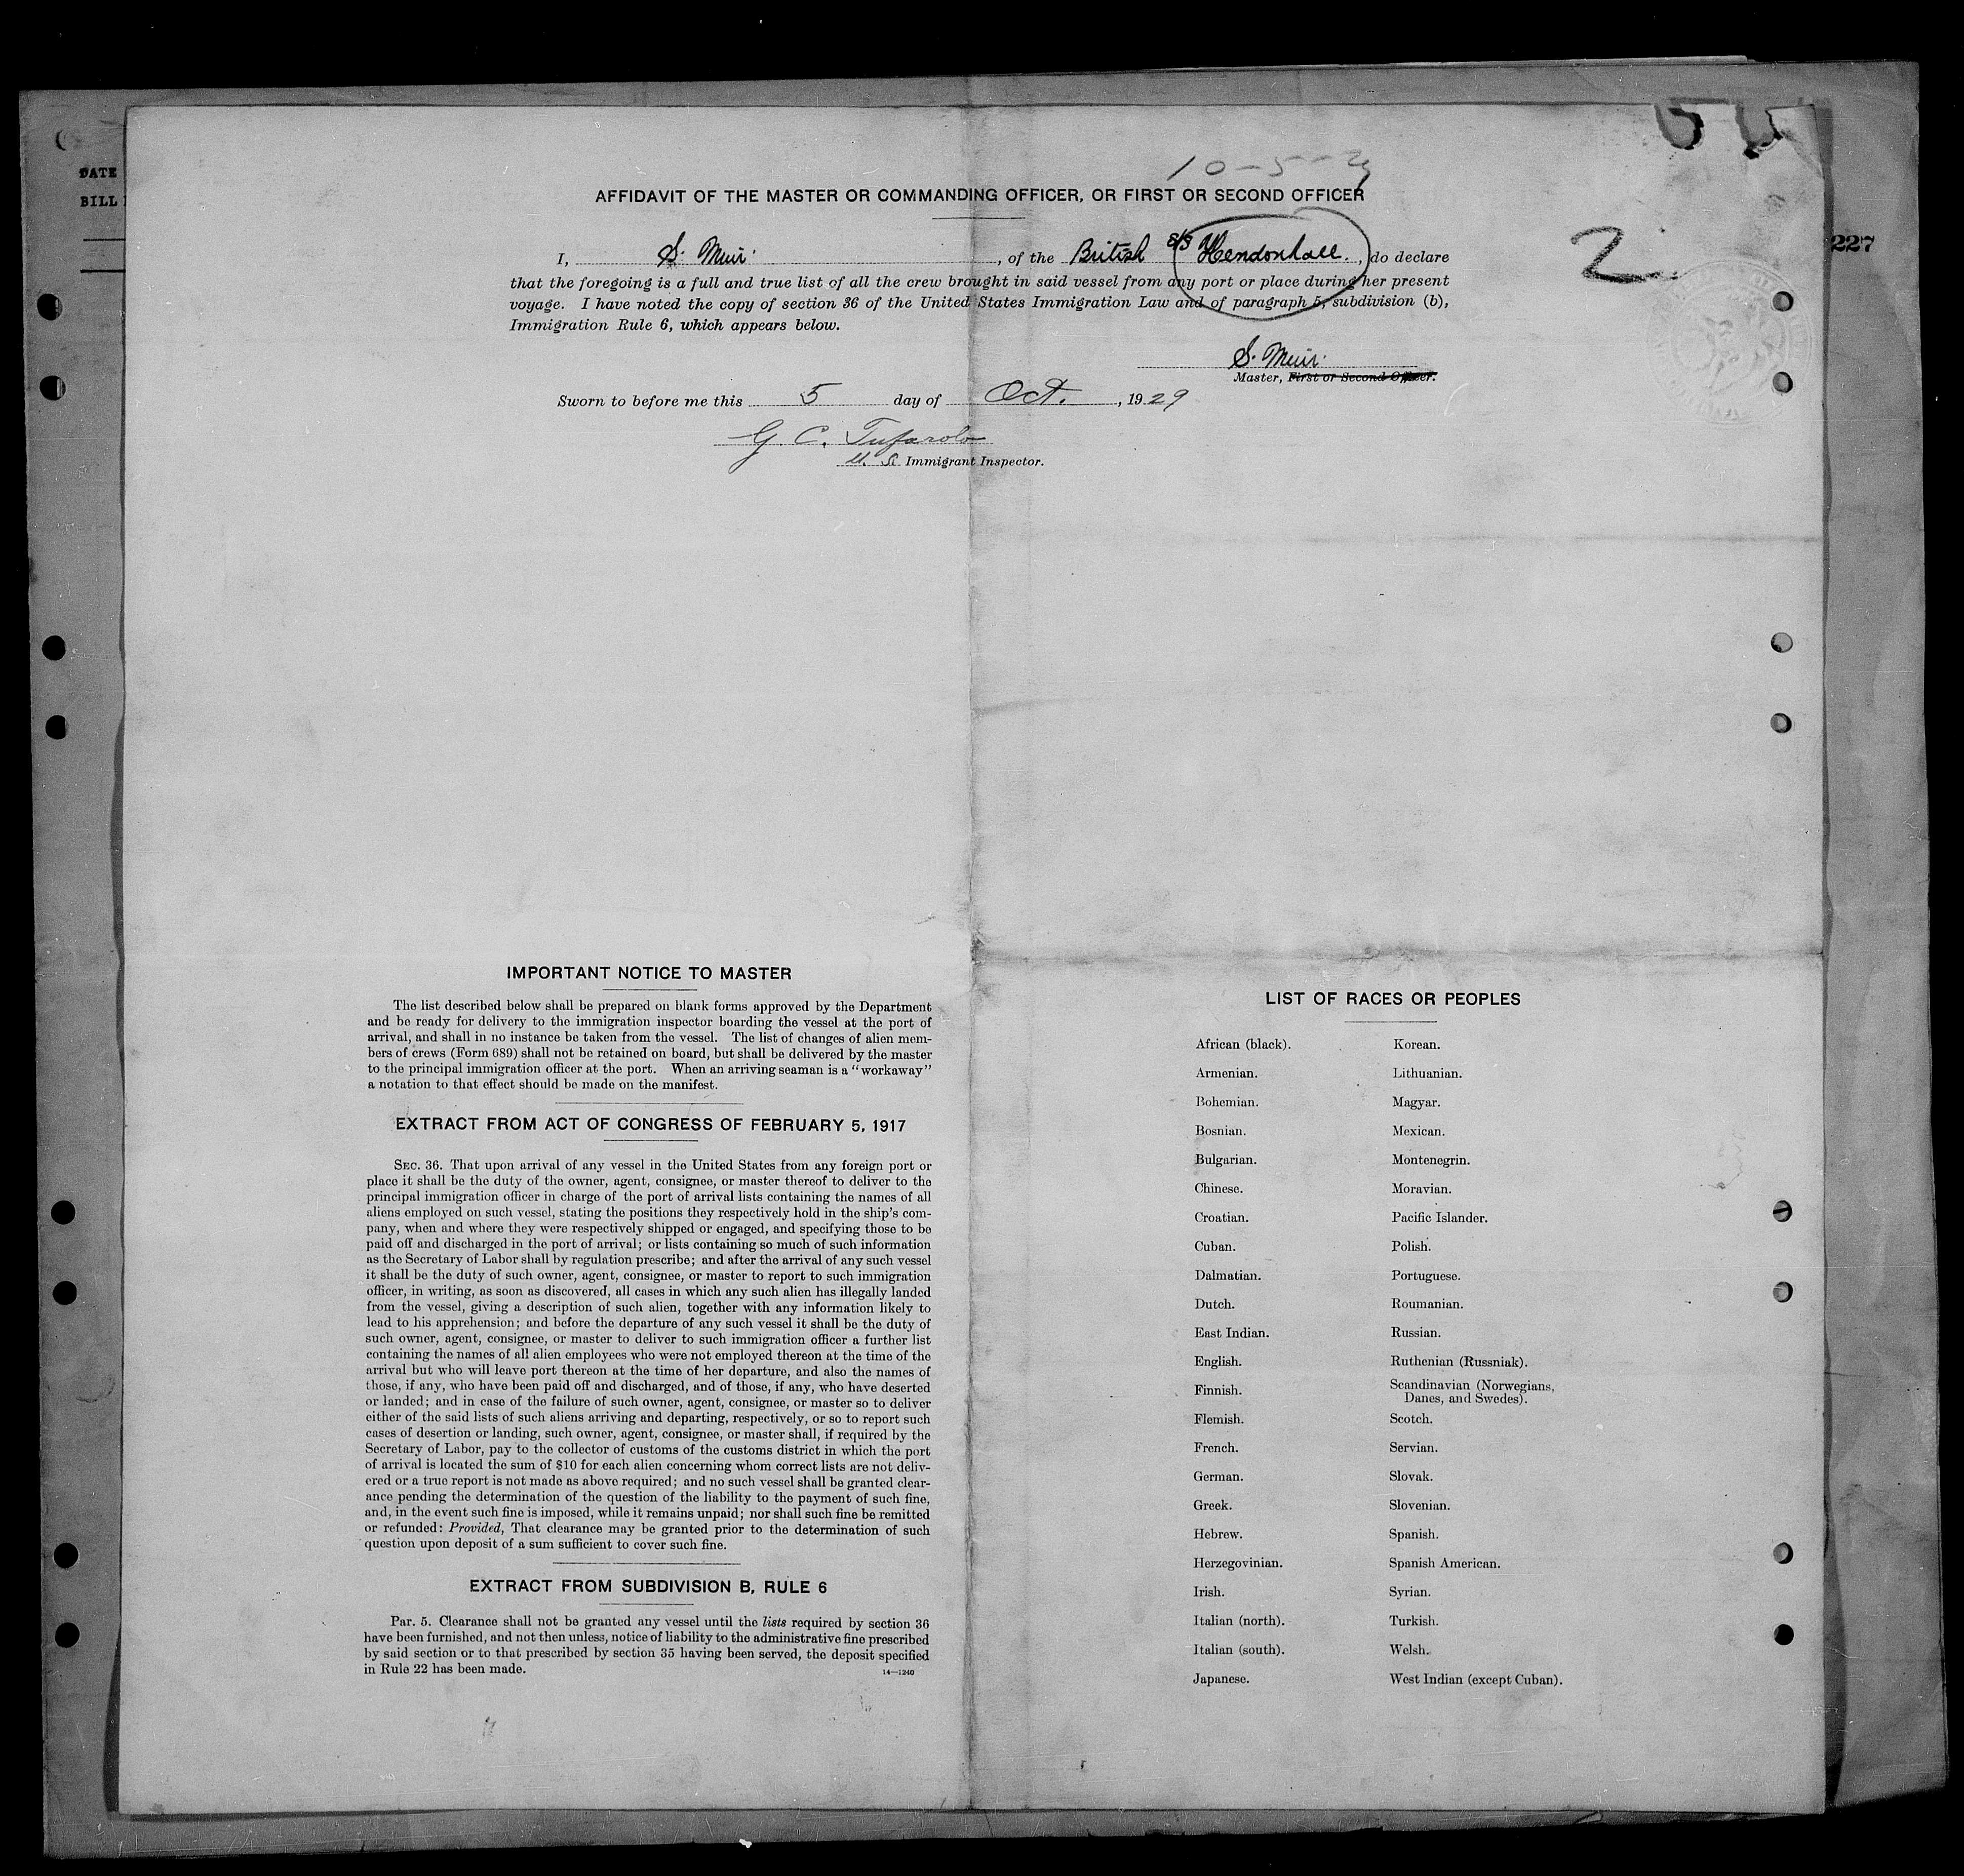 10-5-29
AFFIDAVIT OF THE MASTER OR COMMANDING OFFICER, OR FIRST OR SECOND OFFICER
DATE
BILL
227
2
I, S. Muir, of the British S/S Hendonhall, do declare
that the foregoing is a full and true list of all the crew brought in said vessel from any port or place during her present
voyage. I have noted the copy of section 36 of the United States Immigration Law and of paragraph 5, subdivision (b),
Immigration Rule 6, which appears below.
S. Muir.
Master, First or Second Officer.
Sworn to before me this 5 day of Oct., 1929
G. C. Tufarolo
U. S. Immigrant Inspector.
IMPORTANT NOTICE TO MASTER
The list described below shall be prepared on blank forms approved by the Department
and be ready for delivery to the immigration inspector boarding the vessel at the port of
arrival, and shall in no instance be taken from the vessel. The list of changes of alien mem-
bers of crews (Form 689) shall not be retained on board, but shall be delivered by the master
to the principal immigration officer at the port. When an arriving seaman is a "workaway"
a notation to that effect should be made on the manifest.
EXTRACT FROM ACT OF CONGRESS OF FEBRUARY 5, 1917
SEC. 36. That upon arrival of any vessel in the United States from any foreign port or
place it shall be the duty of the owner, agent, consignee, or master thereof to deliver to the
principal immigration officer in charge of the port of arrival lists containing the names of all
aliens employed on such vessel, stating the positions they respectively hold in the ship's com-
pany, when and where they were respectively shipped or engaged, and specifying those to be
paid off and discharged in the port of arrival; or lists containing so much of such information
as the Secretary of Labor shall by regulation prescribe; and after the arrival of any such vessel
it shall be the duty of such owner, agent, consignee, or master to report to such immigration
officer, in writing, as soon as discovered, all cases in which any such alien has illegally landed
from the vessel, giving a description of such alien, together with any information likely to
lead to his apprehension; and before the departure of any such vessel it shall be the duty of
such owner, agent, consignee, or master to deliver to such immigration officer a further list
containing the names of all alien employees who were not employed thereon at the time of the
arrival but who will leave port thereon at the time of her departure, and also the names of
those, if any, who have been paid off and discharged, and of those, if any, who have deserted
or landed; and in case of the failure of such owner, agent, consignee, or master so to deliver
either of the said lists of such aliens arriving and departing, respectively, or so to report such
cases of desertion or landing, such owner, agent, consignee, or master shall, if required by the
Secretary of Labor, pay to the collector of customs of the customs district in which the port
of arrival is located the sum of $10 for each alien concerning whom correct lists are not deliv-
ered or a true report is not made as above required; and no such vessel shall be granted clear-
ance pending the determination of the question of the liability to the payment of such fine,
and, in the event such fine is imposed, while it remains unpaid; nor shall such fine be remitted
or refunded: Provided, That clearance may be granted prior to the determination of such
question upon deposit of a sum sufficient to cover such fine.
EXTRACT FROM SUBDIVISION B, RULE 6
Par. 5. Clearance shall not be granted any vessel until the lists required by section 36
have been furnished, and not then unless, notice of liability to the administrative fine prescribed
by said section or to that prescribed by section 35 having been served, the deposit specified
in Rule 22 has been made.
14—1240
LIST OF RACES OR PEOPLES
African (black). Korean.
Armenian. Lithuanian.
Bohemian. Magyar.
Bosnian. Mexican.
Bulgarian. Montenegrin.
Chinese. Moravian.
Croatian. Pacific Islander.
Cuban. Polish.
Dalmatian. Portuguese.
Dutch. Roumanian.
East Indian. Russian.
English. Ruthenian (Russniak).
Finnish. Scandinavian (Norwegians,
Danes, and Swedes).
Flemish. Scotch.
French. Servian.
German. Slovak.
Greek. Slovenian.
Hebrew. Spanish.
Herzegovinian. Spanish American.
Irish. Syrian.
Italian (north). Turkish.
Italian (south). Welsh.
Japanese. West Indian (except Cuban).